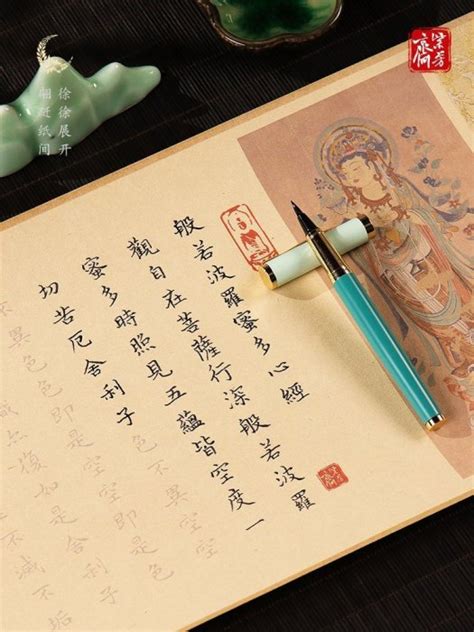 徐徐展开
纸间
般若波羅蜜多心經
觀自在菩薩行深般若波羅
蜜多時照見五蘊皆空度一
切苦厄舍利子色不異空空
不異色色即是空空即是
復如是舍利子
不減不垢